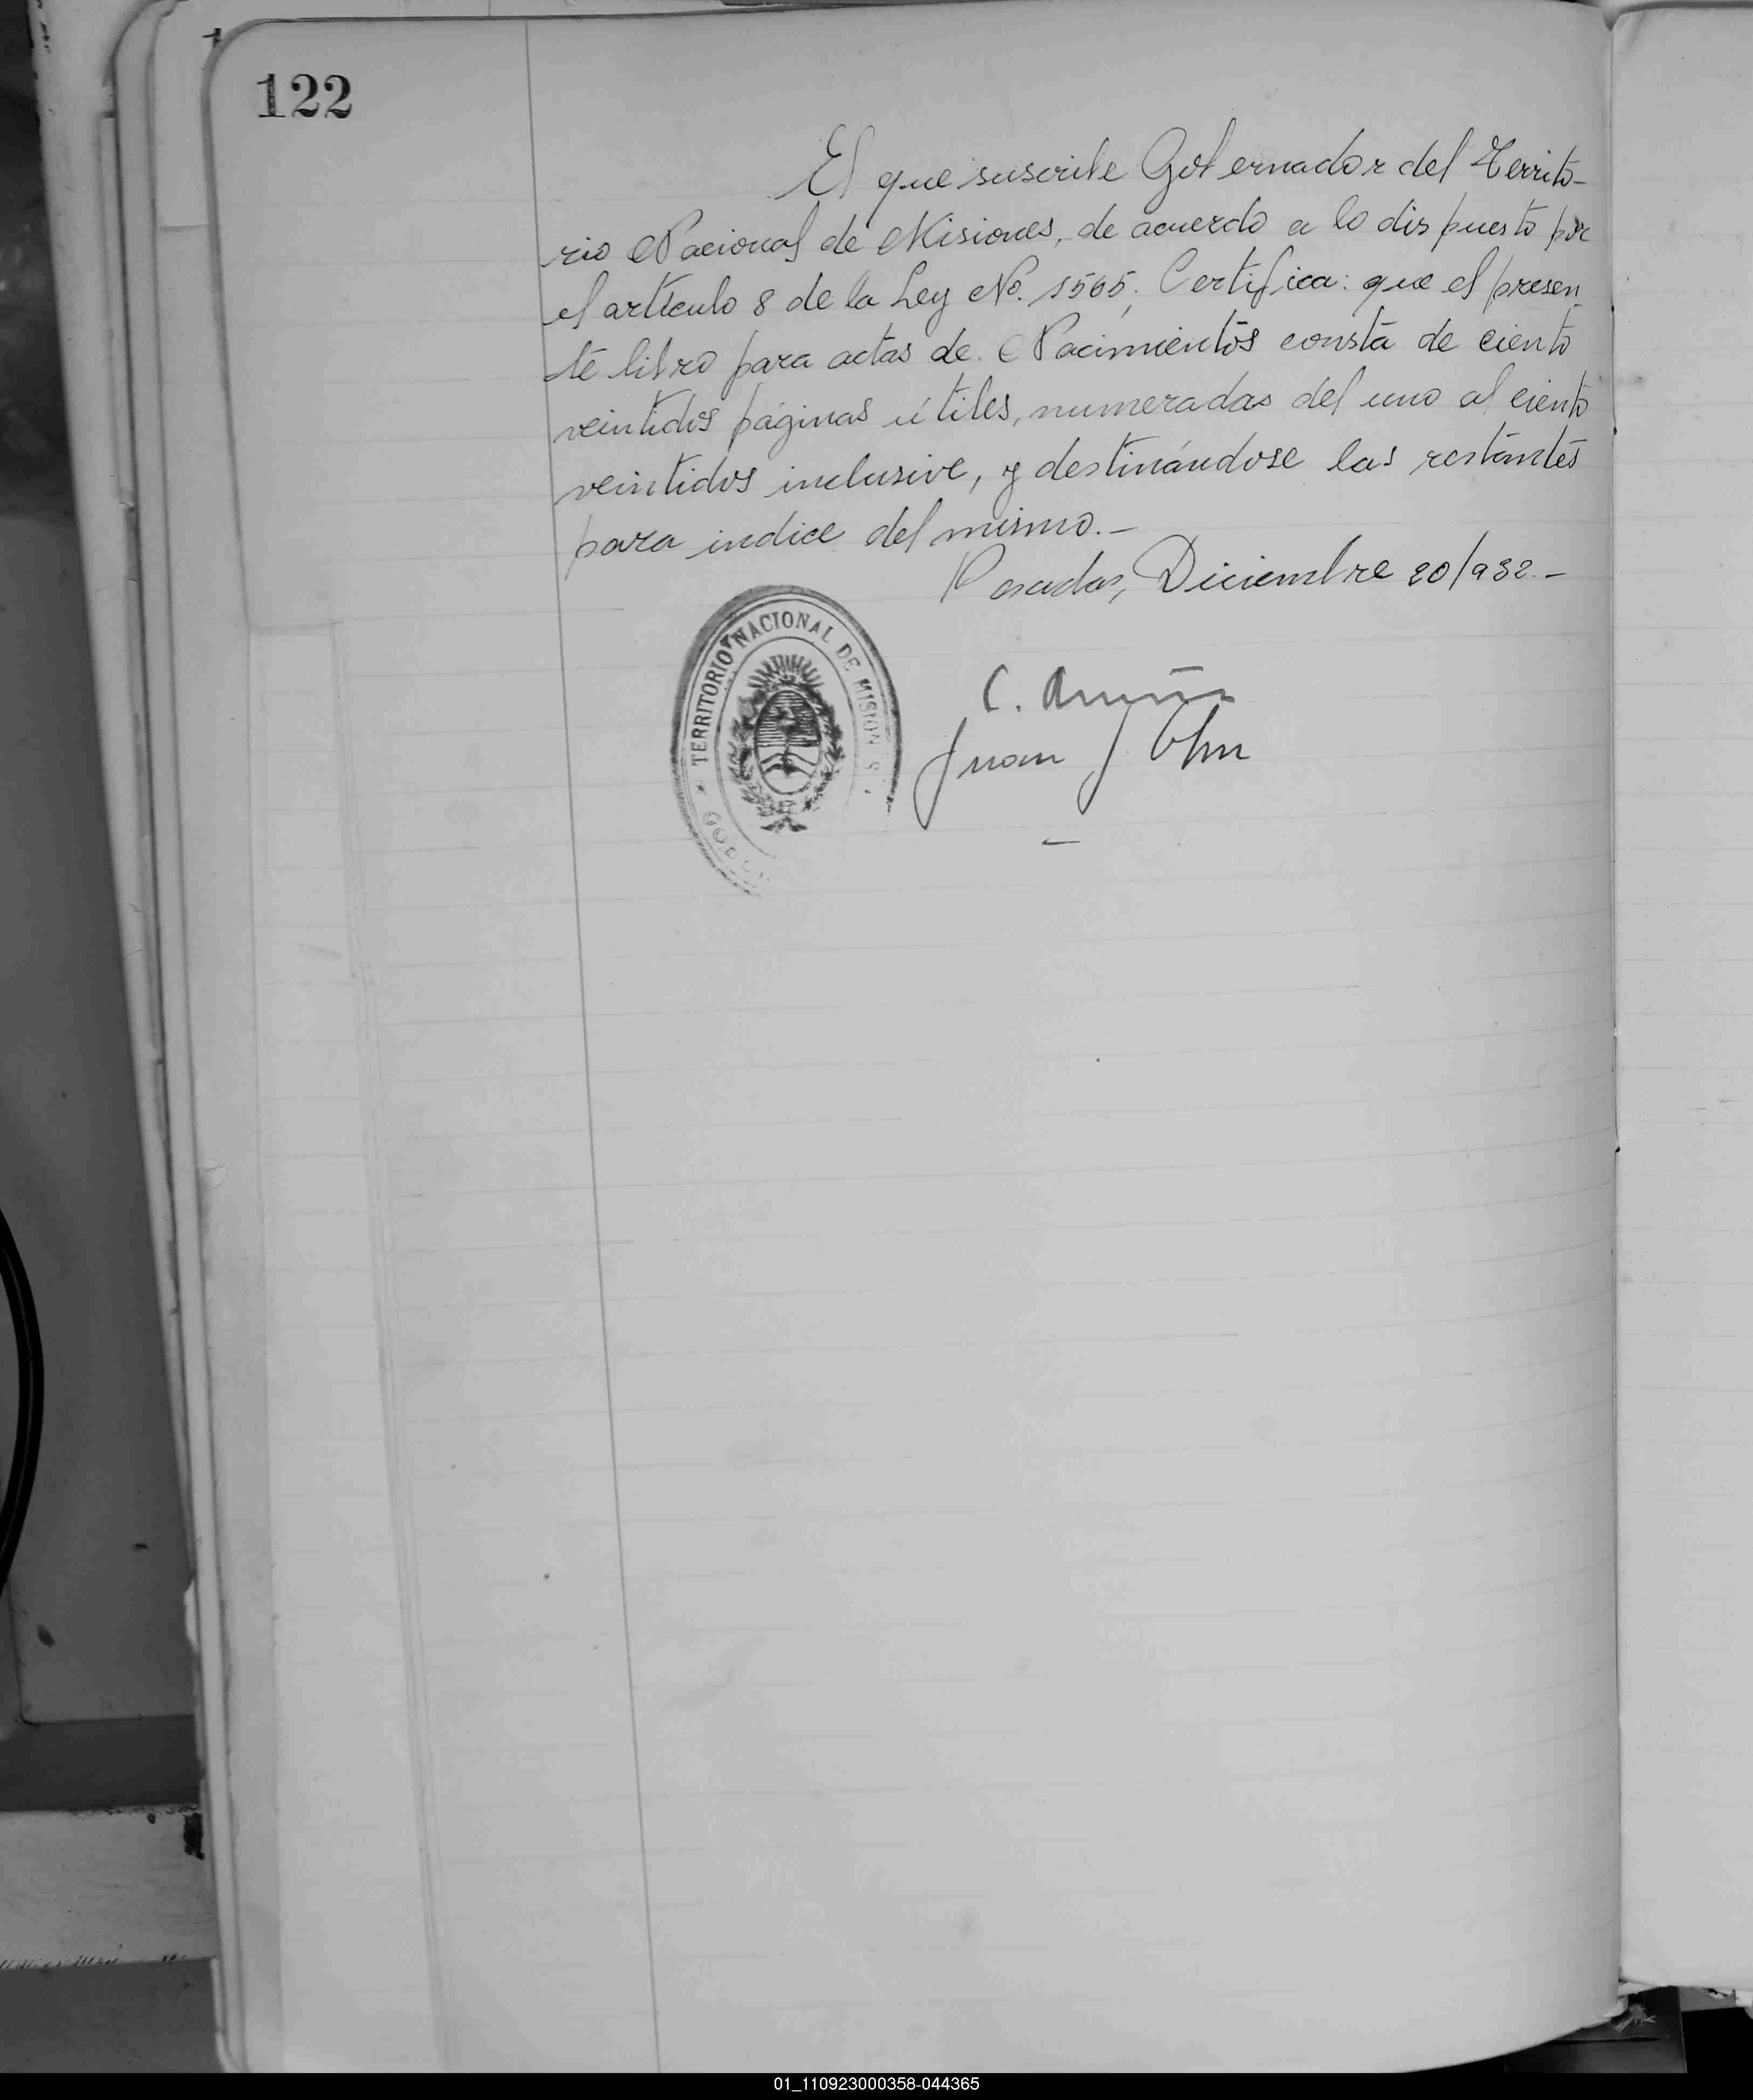 122
El que suscribe Gobernador del Territo-
rio Nacional de Misiones, de acuerdo a lo dispuesto por
el artículo 8 de la Ley No. 1565; Certifica: que el presen-
te libro para actas de Nacimientos consta de ciento
veintidos páginas útiles, numeradas del uno al ciento
veintidos inclusive, y destinándose las restantes
para indice del mismo.-
Posadas, Diciembre 20/932.-
TERRITORIO NACIONAL DE MISIONES
C.
Juan J.
01_110923000358-044365